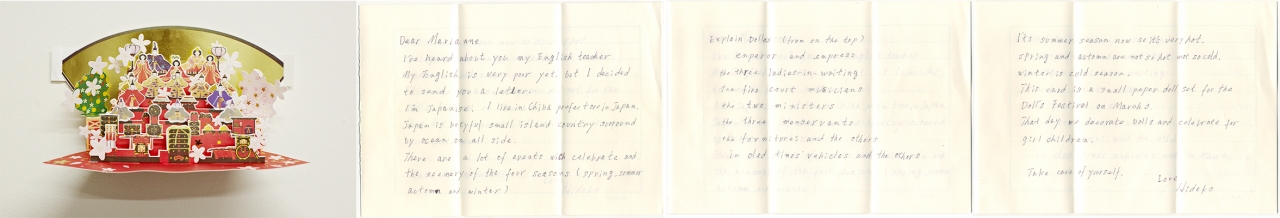 Dear Marianne
I've heard about you my English teacher
My English is very poor yet. but I decided
to send you a letter.
I'm Japanise. I live in Chiba prefecture Japan.
Japan is small island country surround
by ocean on all side.
There are a lot of events with celebrate and
the scenery of the four seasons (spring, summer
autumn and winter)
Explain Dolls (from on the top)
emperor and empress
the three ladies-in-waiting
the five court musicians
the two ministers
the three manservants
the furnitures and the others
in oled times vehicles and the others
It's summer season now so it's very hot.
spring and autumn are not so hot not so cold.
winter is cold season.
This card is a small paper doll set for the
Doll's Festival on March 3.
That day we decorate Dolls and celebrate for
girl children.
Take care of yourself.
Love
Hideko